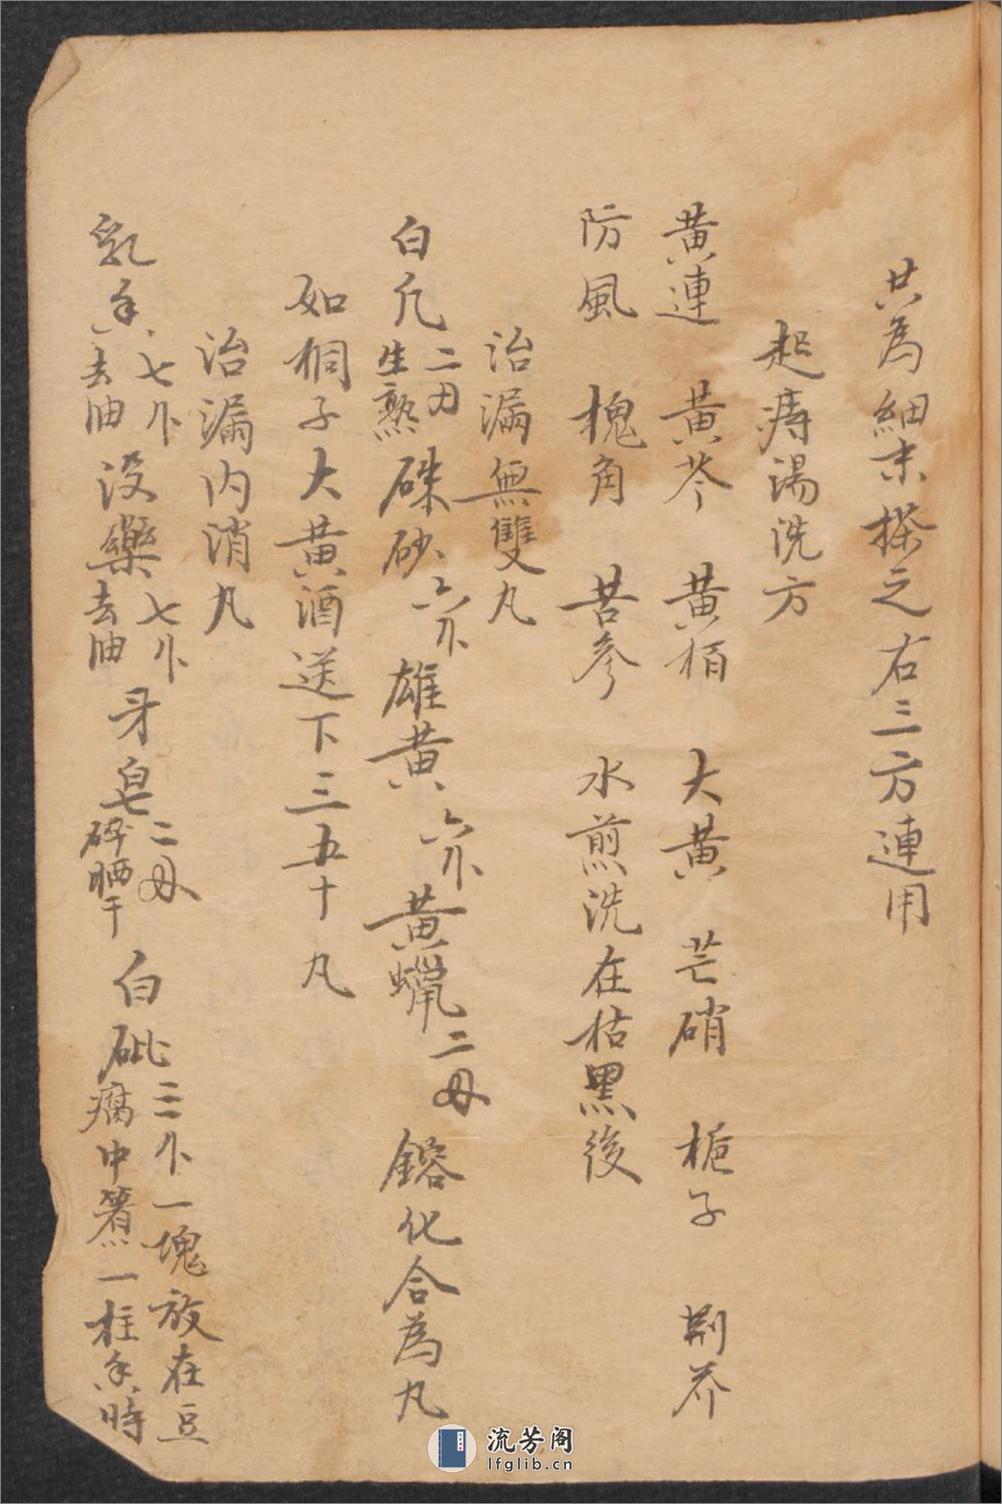 共為細末搽之右三方連用
起痔湯洗方
黄連 黄芩 黄栢 大黄 芒硝 梔子 荆芥
防風 槐角 苦參 水煎洗在枯黑後
治漏無雙丸
白凡二刄生熟硃砂六卜雄黄六卜黄蠟二刄鎔化合為丸
如桐子大黄酒送下三五十丸
治漏内消丸
乳香七卜去油没藥七卜去油牙皂二刄碎晒干白砒三卜一塊放在豆腐中煮一柱香時
流芳阁
lfglib.cn